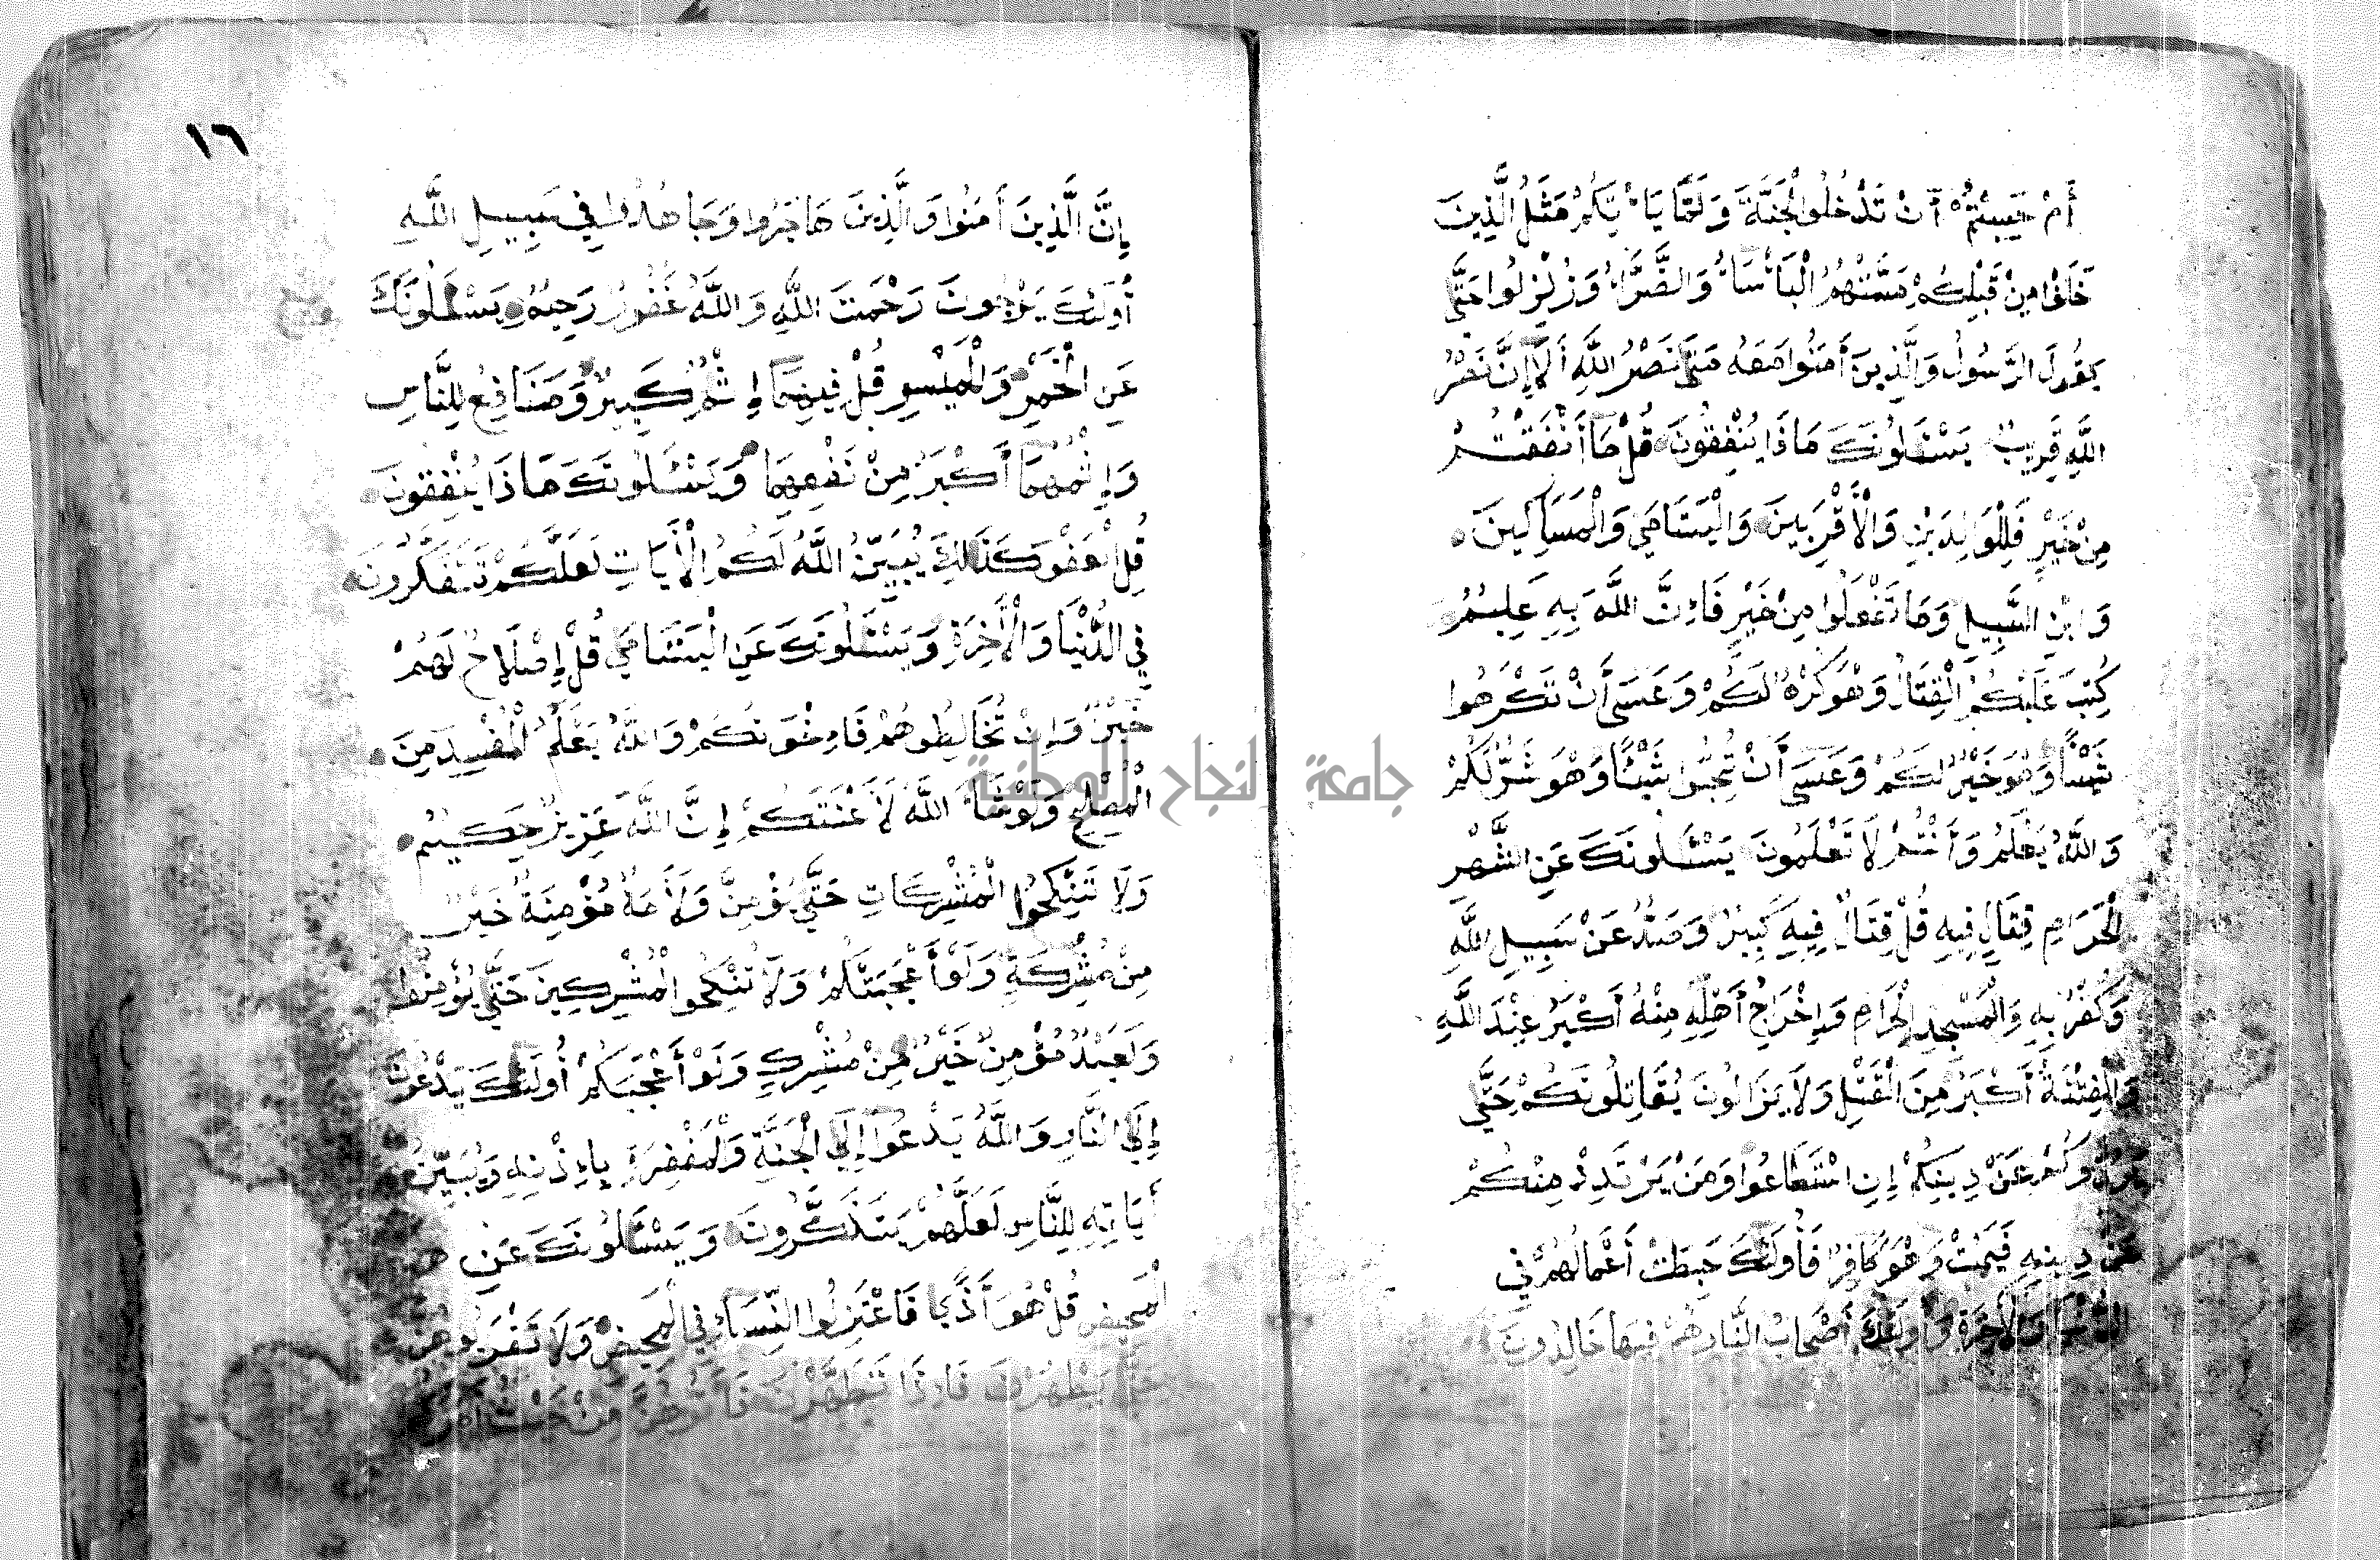 أَمْ حَسِبْتُمْ أَنْ تَدْخُلُوا الْجَنَّةَ وَلَمَّا يَأْتِكُمْ مَثَلُ الَّذِينَ
خَلَوْا مِنْ قَبْلِكُمْ مَسَّتْهُمُ الْبَأْسَاءُ وَالضَّرَّاءُ وَزُلْزِلُوا حَتَّى
يَقُولَ الرَّسُولُ وَالَّذِينَ أَمَنُوا مَعَهُ مَتَى نَصْرُ اللَّهِ أَلَا إِنَّ نَصْرَ
اللَّهِ قَرِيبٌ يَسْئَلُونَكَ مَاذَا يُنْفِقُونَ قُلْ مَا أَنْفَقْتُمْ
مِنْ خَيْرٍ فَلِلْوَالِدَيْنِ وَالْأَقْرَبِينَ وَالْيَتَامَى وَالْمَسَاكِينَ
وَابْنِ السَّبِيلِ وَمَا تَفْعَلُوا مِنْ خَيْرٍ فَإِنَّ اللَّهَ بِهِ عَلِيمٌ
كُتِبَ عَلَيْكُمُ الْقِتَالُ وَهُوَ كُرْهٌ لَكُمْ وَعَسَى أَنْ تَكْرَهُوا
شَيْئًا وَهُوَ خَيْرٌ لَكُمْ وَعَسَى أَنْ تُحِبُّوا شَيْئًا وَهْوَ شَرٌّ لَكُمْ
وَاللَّهُ يَعْلَمُ وَأَنْتُمْ لَا تَعْلَمُونَ يَسْئَلُونَكَ عَنِ الشَّهْرِ
الْحَرَامِ قِتَالٍ فِيهِ قُلْ قِتَالٌ فِيهِ كَبِيرٌ وَصَدٌّ عَنْ سَبِيلِ اللَّهِ
وَكُفْرٌ بِهِ وَالْمَسْجِدِ الْحَرَامِ وَإِخْرَاجُ أَهْلِهِ مِنْهُ أَكْبَرُ عِنْدَ اللَّهِ
وَالْفِتْنَةُ أَكْبَرُ مِنَ الْقَتْلِ وَلَا يَزَالُونَ يُقَاتِلُونَكُمْ حَتَّى
يَرُدُّوكُمْ عَنْ دِينِكُمْ إِنِ اسْتَطَاعُوا وَمَنْ يَرْتَدِدْ مِنْكُمْ
عَنْ دِينِهِ فَيَمُتْ وَهْوَ كَافِرٌ فَأُولَئِكَ حَبِطَتْ أَعْمَالُهُمْ فِي
الدُّنْيَا وَالْأَخِرَةِ وَأُولَئِكَ أَصْحَابُ النَّارِ هُمْ فِيهَا خَالِدُونَ
١٦
إِنَّ الَّذِينَ أَمَنُوا وَالَّذِينَ هَاجَرُوا وَجَاهَدُوا فِي سَبِيلِ اللَّهِ
أُولَئِكَ يَرْجُونَ رَحْمَتَ اللَّهِ وَاللَّهُ غَفُورٌ رَحِيمٌ يَسْئَلُونَكَ
عَنِ الْخَمْرِ وَالْمَيْسِرِ قُلْ فِيهِمَا إِثْمٌ كَبِيرٌ وَمَنَافِعُ لِلنَّاسِ
وَإِثْمُهُمَا أَكْبَرُ مِنْ نَفْعِهِمَا وَيَسْئَلُونَكَ مَاذَا يُنْفِقُونَ
قُلِ الْعَفْوَ كَذَلِكَ يُبَيِّنُ اللَّهُ لَكُمُ الْأَيَاتِ لَعَلَّكُمْ تَتَفَكَّرُونَ
فِي الدُّنْيَا وَالْأَخِرَةِ وَيَسْئَلُونَكَ عَنِ الْيَتَامَى قُلْ إِصْلَاحٌ لَهُمْ
خَيْرٌ وَإِنْ تُخَالِطُوهُمْ فَإِخْوَنُكُمْ وَاللَّهُ يَعْلَمُ الْمُفْسِدَ مِنَ
الْمُصْلِحِ وَلَوْ شَاءَ اللَّهُ لَأَعْنَتَكُمْ إِنَّ اللَّهَ عَزِيزٌ حَكِيمٌ
وَلَا تَنْكِحُوا الْمُشْرِكَاتِ حَتَّى يُؤْمِنَّ وَلَأَمَةٌ مُؤْمِنَةٌ خَيْرٌ
مِنْ مُشْرِكَةٍ وَلَوْ أَعْجَبَتْكُمْ وَلَا تُنْكِحُوا الْمُشْرِكِينَ حَتَّى يُؤْمِنُوا
وَلَعَبْدٌ مُؤْمِنٌ خَيْرٌ مِنْ مُشْرِكٍ وَلَوْ أَعْجَبَكُمْ أُولَئِكَ يَدْعُونَ
إِلَى النَّارِ وَاللَّهُ يَدْعُوا إِلَى الْجَنَّةِ وَالْمَغْفِرَةِ بِإِذْنِهِ وَيُبَيِّنُ
أَيَاتِهِ لِلنَّاسِ لَعَلَّهُمْ يَتَذَكَّرُونَ وَيَسْئَلُونَكَ عَنِ
الْمَحِيضِ قُلْ هُوَ أَذًى فَاعْتَزِلُوا النِّسَاءَ فِي الْمَحِيضِ وَلَا تَقْرَبُوهُنَّ
حَتَّى يَطْهُرْنَ فَإِذَا تَطَهَّرْنَ فَأْتُوهُنَّ مِنْ حَيْثُ أَمَرَكُمُ
جامعة النجاح الوطنية